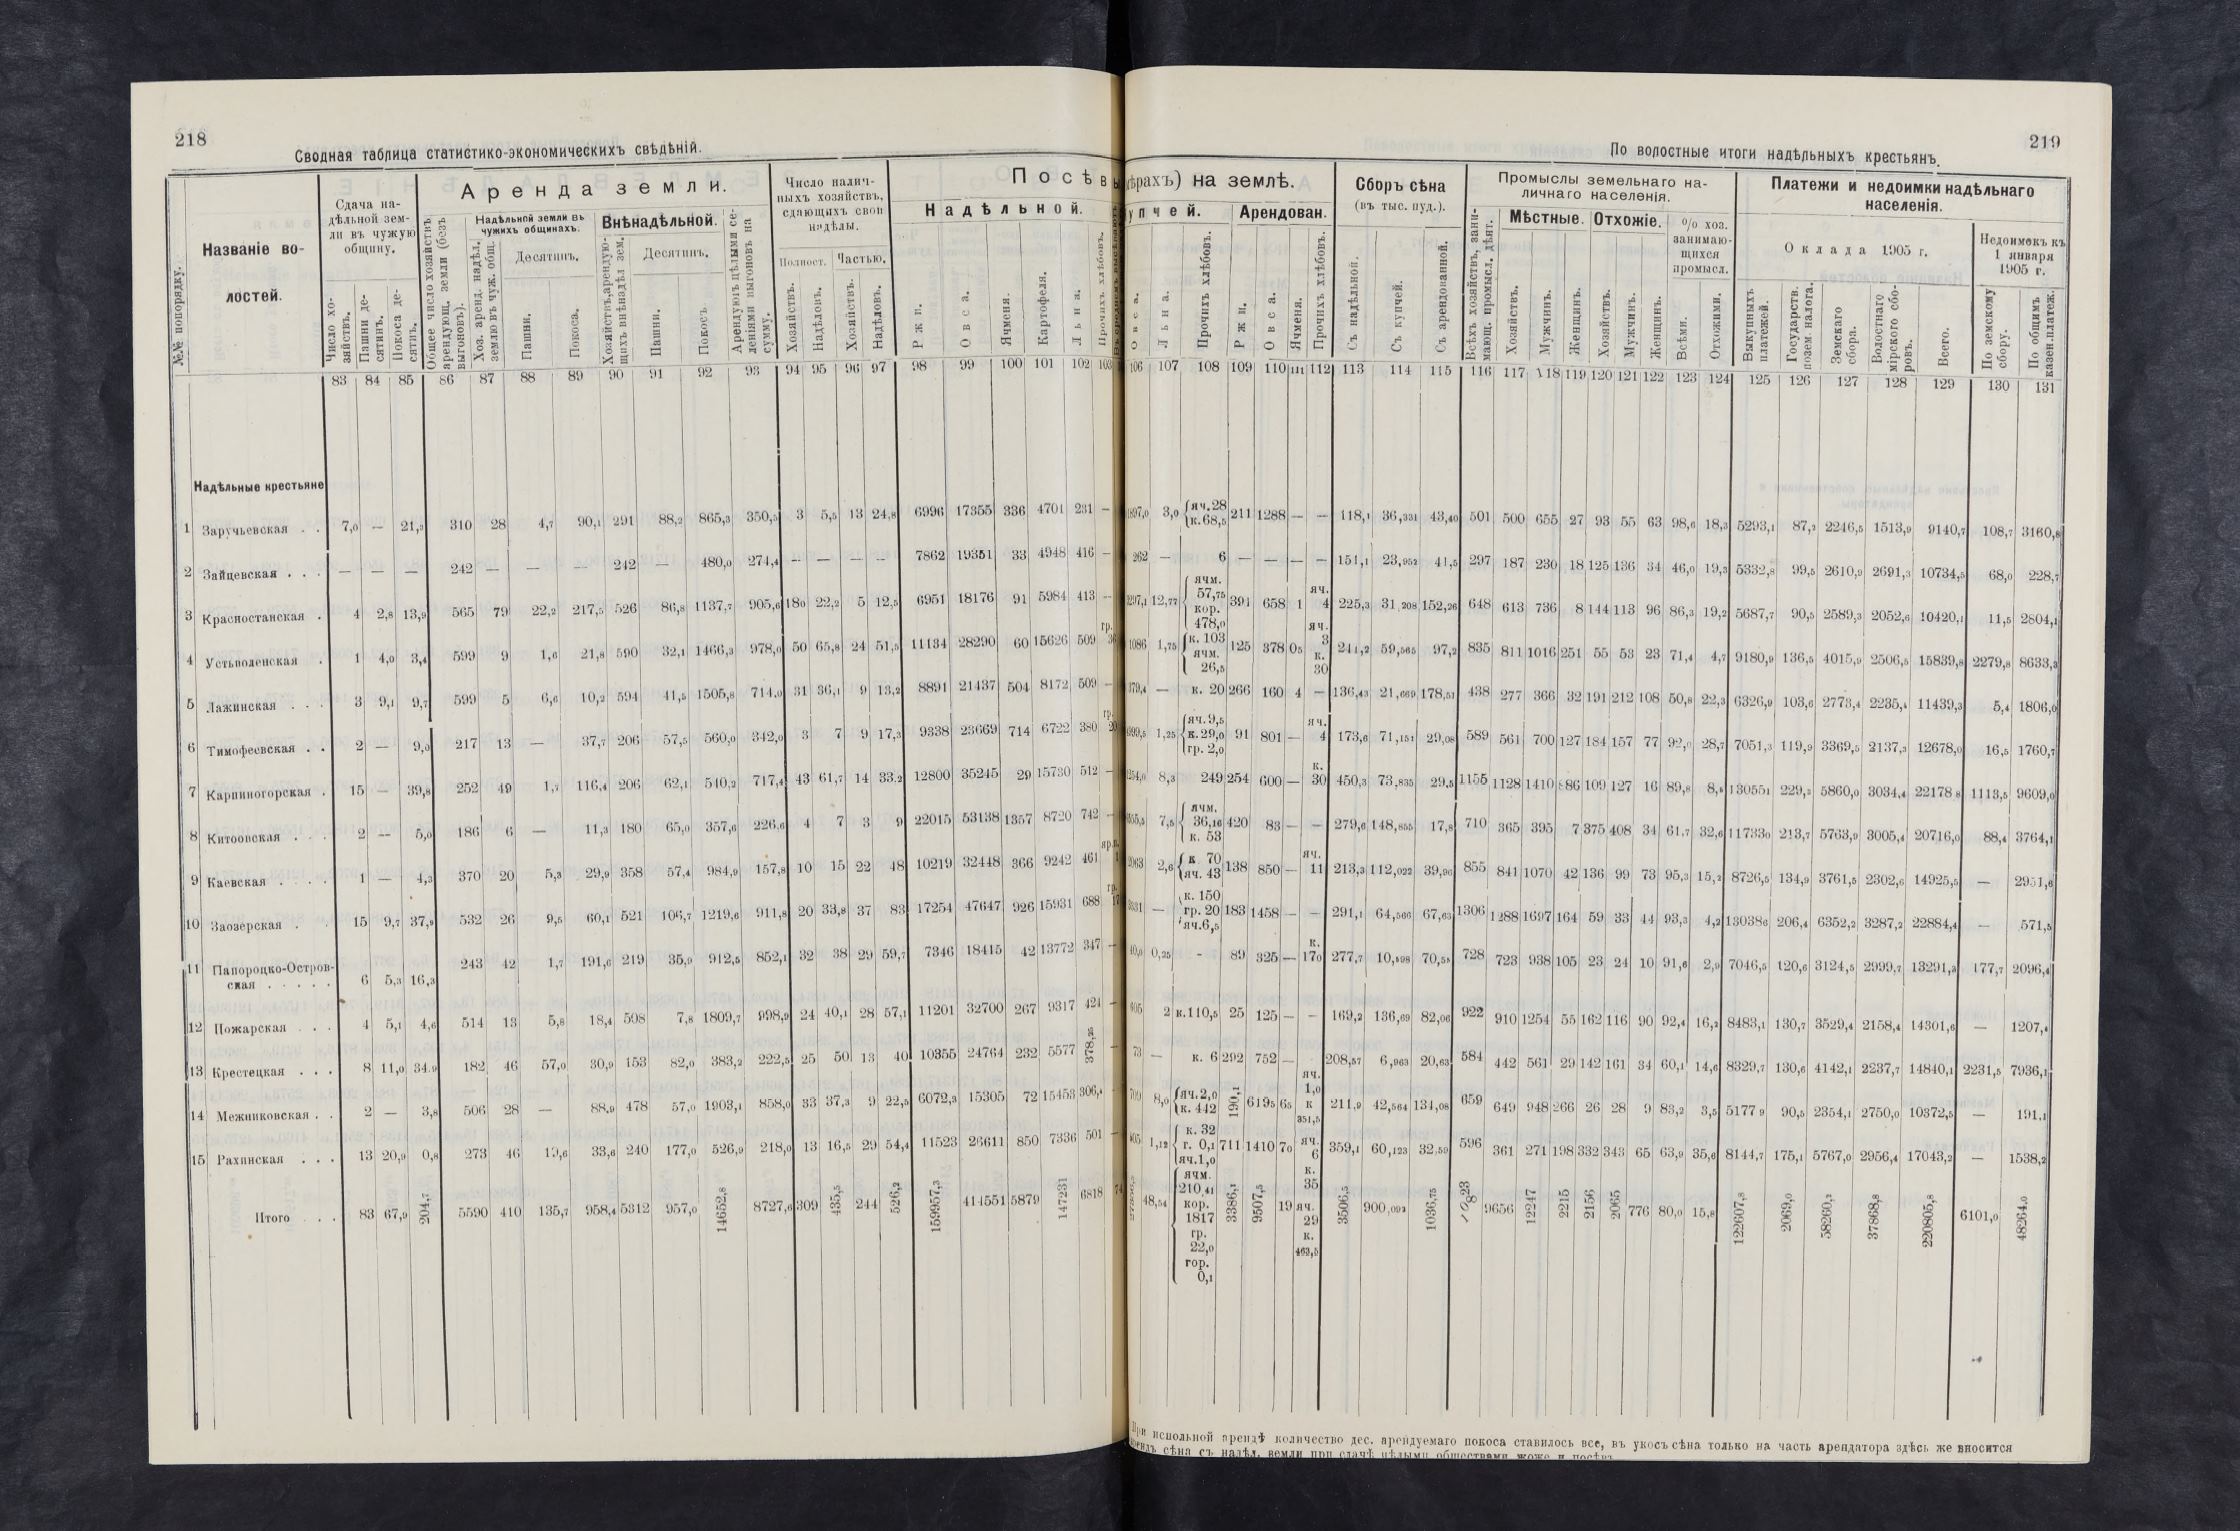 218
Сводная таблица статистико-экономическихъ свѣдѣній.
№№ по порядку.
Названіе во-
лостей.
Сдача на-
дѣльной зем-
ли въ чужую
общину.
Число хо-
зяйствъ.
Пашни де-
сятинъ.
Покоса де-
сятинъ.
Аренда земли.
Общее число хозяйствъ
арендующ. земли (безъ
выгоновъ).
Надѣльной земли въ
чужихъ общинахъ.
Хоз. аренд. надѣл.
землю въ чуж. общ.
Десятинъ.
Пашни.
Покоса.
Внѣнадѣльной.
Хозяйствъ, арендую-
щихъ внѣнадѣл зем.
Десятинъ.
Пашни.
Покосъ
Арендуютъ цѣлыми се-
леніями выгоновъ на
сумму.
Число налич-
ныхъ хозяйствъ,
сдающихъ свои
надѣлы.
Полност.
Частью.
Хозяйствъ.
Надѣловъ.
Хозяйствъ.
Надѣловъ.
Посѣвы
Надѣльной.
Ржи.
Овса.
Ячменя.
Картофеля.
Льна.
Прочихъ хлѣбовъ.
83 84 85 86 87 88 89 90 91 92 93 94 95 96 97 98 99 100 101 102 103
Надѣльные крестьяне
1 Заручьевская . . 7,0 — 21,3 310 28 4,7 90,1 291 88,2 865,3 350,5 3 5,5 13 24,8 6996 17355 336 4701 231 —
2 Зайцевская . . . — — — 242 — — — 242 — 480,0 274,4 — — — — 7862 19351 33 4948 416 —
3 Красностанская . 4 2,8 13,9 565 79 22,2 217,5 526 86,8 1137,7 905,6 180 22,2 5 12,5 6951 18176 91 5984 413 —
4 Устьволенская . 1 4,0 3,4 599 9 1,6 21,8 590 32,1 1466,3 978,0 50 65,8 24 51,5 11134 28290 60 15626 509 гр. 36
5 Лажинская . . . 3 9,1 9,7 599 5 6,6 10,2 594 41,5 1505,8 714,0 31 36,1 9 13,2 8891 21437 504 8172 509 —
6 Тимофеевская . . 2 — 9,0 217 13 — 37,7 206 57,5 560,0 342,0 3 7 9 17,3 9338 23669 714 6722 380 гр. 20
7 Карпиногорская . 15 — 39,8 252 49 1,7 116,4 206 62,1 540,2 717,4 43 61,7 14 33,2 12800 35245 29 15730 512 —
8 Китоовская . . . 2 — 5,0 186 6 — 11,3 180 65,0 357,6 226,6 4 7 3 9 22015 53138 1357 8720 742 —
9 Каевская . . . . 1 — 4,3 370 20 5,3 29,9 358 57,4 984,9 157,8 10 15 22 48 10219 32448 366 9242 461
10 Заозерская . . 15 9,7 37,9 532 26 9,5 60,1 521 106,7 1219,6 911,8 20 33,8 37 83 17254 47647 926 15931 688 гр. 17
11 Папороцко-Остров-
ская . . . . . 6 5,3 16,3 243 42 1,7 191,6 219 35,9 912,5 852,1 32 38 29 59,7 7346 18415 42 13772 347 —
12 Пожарская . . . 4 5,1 4,6 514 13 5,8 18,4 508 7,8 1809,7 998,9 24 40,1 28 57,1 11201 32700 267 9317 424 —
13 Крестецкая . . . 8 11,0 34,9 182 46 57,0 30,9 153 82,0 383,2 222,5 25 50 13 40 10355 24764 232 5577 378,25 —
14 Межниковская . . 2 — 3,8 506 28 — 88,9 478 57,0 1903,1 858,0 33 37,3 9 22,5 6072,3 15305 72 15453 306,4 —
15 Рахинская . . . 13 20,9 0,8 273 46 19,6 33,6 240 177,0 526,9 218,0 13 16,5 29 54,4 11523 26611 850 7336 501 —
Итого . . . 83 67,9 204,7 5590 410 135,7 958,4 5312 957,0 14652,8 8727,6 309 435,5 244 526,2 159957,3 414551 5879 147231 6818 74
219
По волостные итоги надѣльныхъ крестьянъ.
ѣрахъ) на землѣ.
упчей.
Арендован.
Овса.
Льна.
Прочихъ хлѣбовъ.
Ржи.
Овса.
Ячменя.
Прочихъ хлѣбовъ.
Сборъ сѣна
(въ тыс. пуд.).
Съ надѣльной.
Съ купчей.
Съ арендованной.
Промыслы земельнаго на-
личнаго населенія.
Всѣхъ хозяйствъ, зани-
мающ. промысл. дѣят.
Мѣстные.
Отхожіе.
% хоз.
занимаю-
щихся
промысл.
Хозяйствъ.
Мужчинъ.
Женщинъ.
Хозяйствъ.
Мужчинъ.
Женщинъ.
Всѣми.
Отхожими.
Платежи и недоимки надѣльнаго
населенія.
Оклада 1905 г.
Недоимокъ къ
1 января
1905 г.
Выкупныхъ
платежей.
Государств.
позем. налога.
Земскаго
сбора.
Волостнаго
мірского сбо-
ровъ.
Всего.
По земскому
сбору.
По общимъ
казен.платеж.
106 107 108 109 110 111 112 113 114 115 116 117 118 119 120 121 122 123 124 125 126 127 128 129 130 131
3,0 {яч.28 к.68,5 211 1288 — — 118,1 36,331 43,40 501 500 655 27 93 55 63 98,6 18,3 5293,1 87,2 2246,5 1513,9 9140,7 108,7 3160,8
262 — 6 — — — — 151,1 23,952 41,5 297 187 230 18 125 136 34 46,0 19,3 5332,8 99,5 2610,9 2691,3 10734,5 68,0 228,7
12,77 {ячм. 57,75 кор. 478,0 391 658 1 яч. 4 225,3 31,208 152,26 648 613 736 8 144 113 96 86,3 19,2 5687,7 90,5 2589,3 2052,6 10420,1 11,5 2804,1
1086 1,75 {к. 103 ячм. 26,5 125 378 05 яч. 3 к. 30 241,2 59,565 97,2 835 811 1016 251 55 53 23 71,4 4,7 9180,9 136,5 4015,9 2506,5 15839,8 2279,8 8633,3
379,4 — к. 20 266 160 4 — 136,43 21,669 178,51 438 277 366 32 191 212 108 50,8 22,3 6326,9 103,6 2773,4 2235,4 11439,3 5,4 1806,0
1,25 {яч.9,5 к.29,0 гр. 2,0 91 801 — яч. 4 173,6 71,151 29,08 589 561 700 127 184 157 77 92,0 28,7 7051,3 119,9 3369,5 2137,3 12678,0 16,5 1760,7
8,3 249 254 600 — к. 30 450,3 73,835 29,5 1155 1128 1410 109 127 16 89,8 8,5 130551 229,2 5860,0 3034,4 22178 8 1113,5 9609,0
7,5 {ячм. 36,16 к. 53 420 83 — — 279,6 148,855 17,8 710 365 395 7 375 408 34 61,7 32,6 117330 213,7 5763,9 3005,4 20716,0 88,4 3764,1
2063 2,6 {к 70 яч. 43 138 850 — яч. 11 213,3 112,022 39,96 855 841 1070 42 136 99 73 95,3 15,2 8726,5 134,9 3761,5 2302,6 14925,5 — 2951,6
— {к. 150 гр. 20 яч.6,5 183 1458 — — 291,1 64,566 67,63 1306 1288 1697 164 59 33 44 93,3 4,2 130386 206,4 6352,2 3287,2 22884,4 — 571,5
0,25 - 89 325 — к. 170 277,7 10,598 70,58 728 723 938 105 23 24 10 91,6 2,9 7046,5 120,6 3124,5 2999,7 13291,3 177,7 2096,4
2 к.110,5 25 125 — — 169,2 136,69 82,06 922 910 1254 55 162 116 90 92,4 16,2 8483,1 130,7 3529,4 2158,4 14301,6 — 1207,4
73 — к. 6 292 752 — 208,57 6,963 20,63 584 442 561 29 142 161 34 60,1 14,6 8329,7 130,6 4142,1 2237,7 14840,1 2231,5 7936,1
8,0 {яч.2,0 к. 442 190,1 6195 65 яч. 1,0 к 351,5 211,9 42,564 134,08 659 649 948 266 26 28 9 83,2 3,5 5177 9 90,5 2354,1 2750,0 10372,5 — 191,1
1,12 {к. 32 г. 0,1 яч.1,0 711 1410 70 яч. 6 359,1 60,123 32,59 596 361 271 198 332 343 65 63,9 35,6 8144,7 175,1 5767,0 2956,4 17043,2 — 1538,2
48,54 {ячм. 210,41 кор. 1817 гр. 22,0 гор. 0,1 3386,1 9507,5 19 к. 35 яч. 29 к. 463,5 3506,5 900,092 1036,75 10823 9656 12247 2215 2156 2065 776 80,0 15,8 122607,8 2069,0 58260,2 37868,8 220805,8 6101,0 48264,0
При испольной арендѣ количество дес. арендуемаго покоса ставилось все, въ укосъ сѣна только на часть арендатора здѣсь же вносится
сѣна съ надѣл. земли при сдачѣ цѣлыми обществами